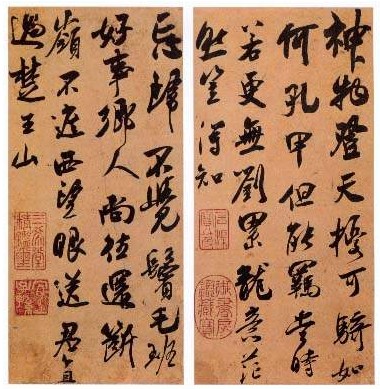 神物登天擾可騎如
何孔甲但能羈當時
若更無劉累龍意茫
然豈得知
忘歸不覺鬢毛班
好事鄉人尚往還斷
嶺不遮西望眼送君直
過楚王山